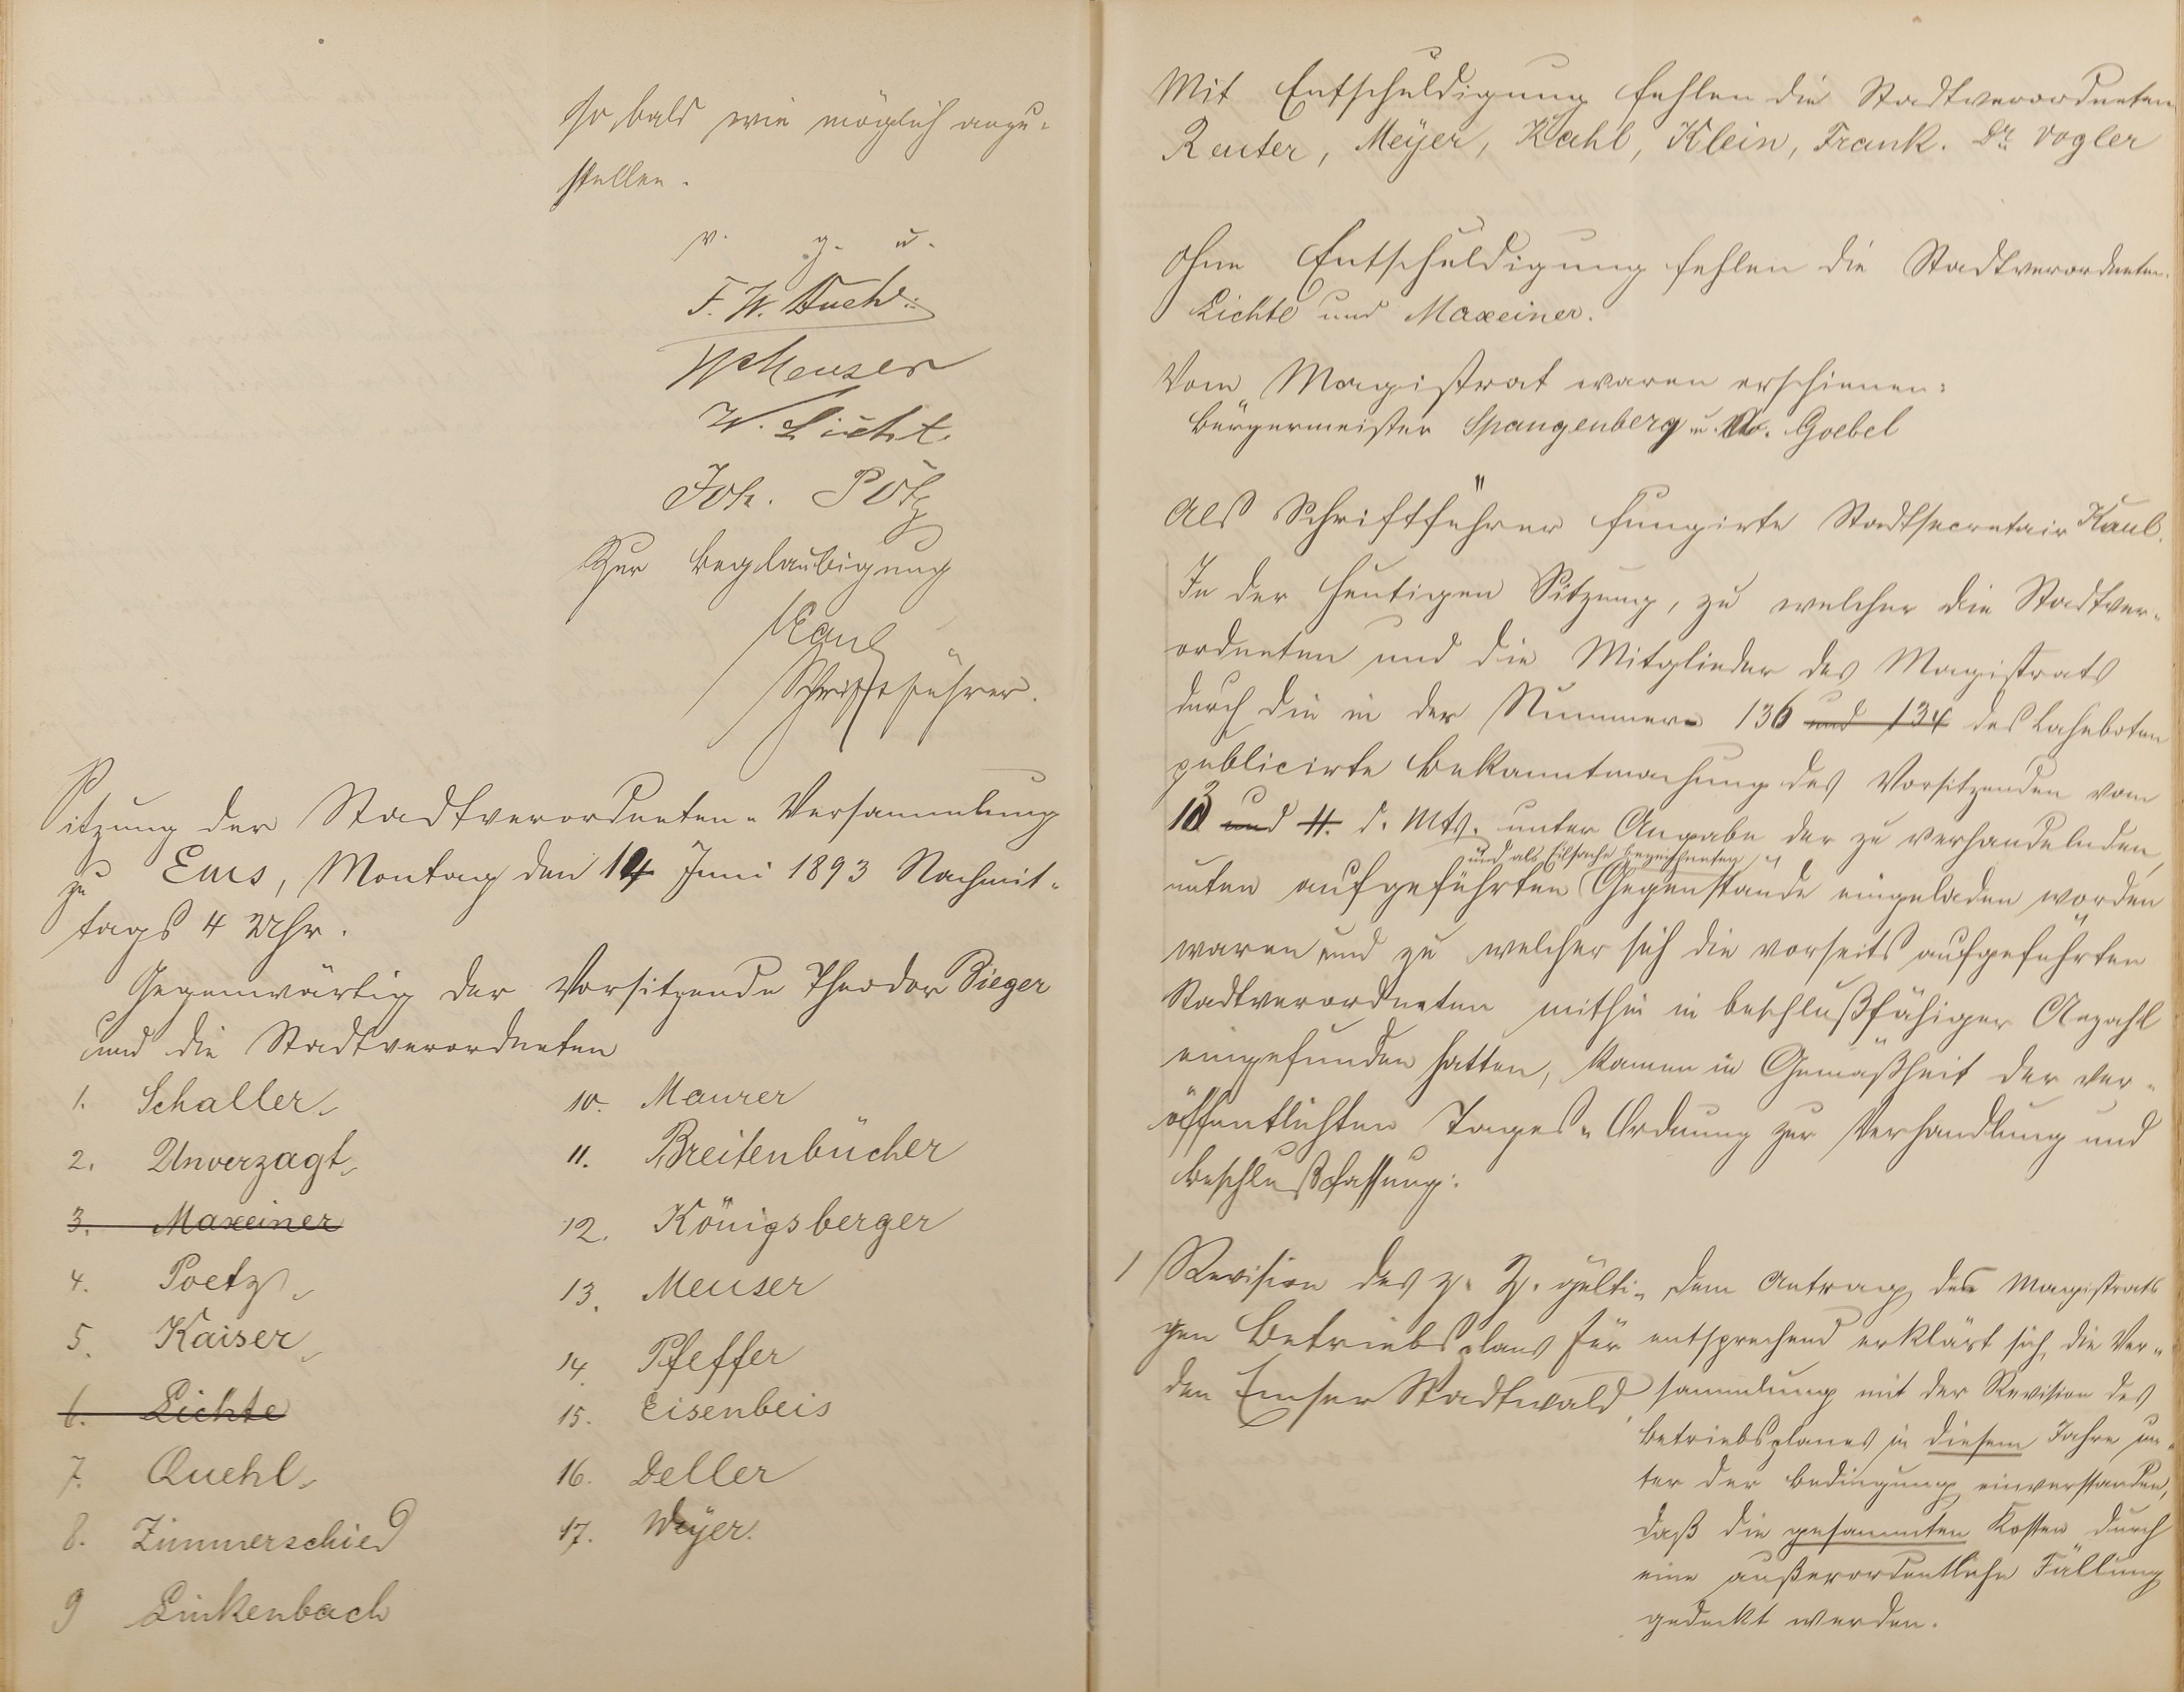 so bald wie möglich anzu-
stellen.
v. g. u.
F. W.
W. Meuser
W. Licht.
Joh. Pötz
Zur Beglaubigung
Kaul
Schriftführer.
Sitzung der Stadtverordneten-Versammlung
zu Ems, Montag den Juni 1893 Nachmit-
tags 4 Uhr.
Gegenwärtig der Vorsitzende Theodor Rieger
und die Stadtverordneten
1. Schaller
2. Unverzagt
3. Maxeiner
4. Poetz
5. Kaiser
6. Lichte
7. Quehl
8. Zimmerschied
9 Linkenbach
10. Maurer
11. Breitenbücher
12. Königsberger
13. Meuser
14. Pfeffer
15. Eisenbeis
16. Deller
17. Weyer.
Mit Entschuldigung fehlen die Stadtverordneten
Reuter, Meÿer, Kahl, Klein, Frank. Dr. Vogler
Ohne Entschuldigung fehlen die Stadtverordneten
Lichte und Maxeiner.
Vom Magistrat waren erschienen:
Bürgermeister Spangenberg u. Goebel
Als Schriftführer fungirte Stadtsecretair Kaul.
In der heutigen Sitzung, zu welcher die Stadtver-
ordneten und die Mitglieder des Magistrats
durch die in der Nummer 136 und 134 des Lahnboten
publicirte Bekanntmachung des Vorsitzenden vom
und 11. d. Mts. unter Angabe der zu verhandelnden,
und als Eilsache bezeichneten
unten aufgeführten Gegenstände eingeladen worden
waren und zu welcher sich die vorseits aufgeführten
Stadtverordneten mithin in beschlußfähiger Anzahl
eingefunden hatten, kamen in Gemäßheit der ver-
öffentlichten Tages-Ordnung zur Verhandlung und
Beschlußfassung:
1 Revision des z. Z. gülti-
gen Betriebsplans für
den Emser Stadtwald
Dem Antrag des Magistrats
entsprechend erklärt sich die Ver-
sammlung mit der Revision des
Betriebsplanes in diesem Jahre un-
ter der Bedingung einverstanden,
daß die gesammten Kosten durch
eine außerordentliche Fällung
gedeckt werden.